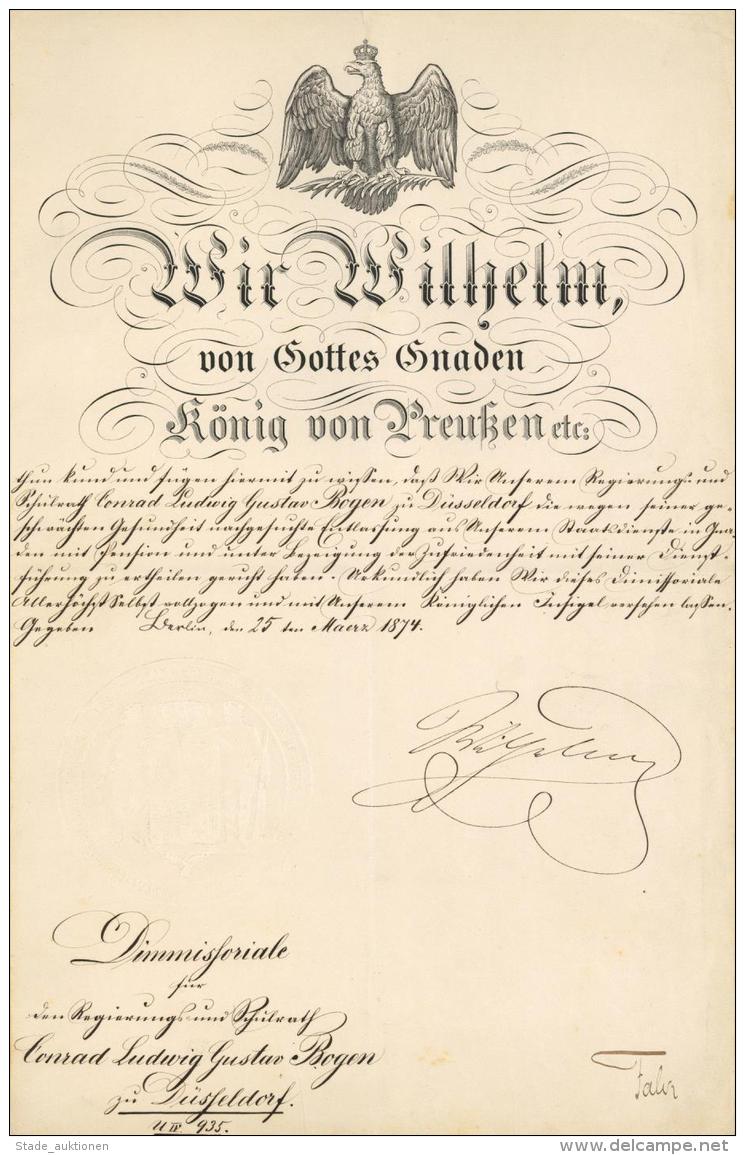 Wir Wilhelm,
von Gottes Gnaden
König von Preußen etc:
thun kund und fügen hiermit zu wissen, daß Wir Unserem Regierungs- und
Schulrath Conrad Ludwig Gustav Bogen zu Düsseldorf die wegen seiner ge-
schwächten Gesundheit nachgesuchte Entlassung aus Unserem Staatsdienste in Gna-
den mit Pension und unter Bezeigung der Zufriedenheit mit seiner Dienst-
führung zu ertheilen geruht haben. Urkundlich haben Wir dieses Dimissoriale
Allerhöchst Selbst vollzogen und mit Unserem Königlichen Insigel versehen lassen.
Gegeben Berlin, den 25 ten Maerz 1874.
Wilhelm
Dimmissoriale
für
den Regierungs und Schulrath
Conrad Ludwig Gustav Bogen
zu Düsseldorf.
U IV. 935.
Falk
Stade_auktionen
delcampe.net